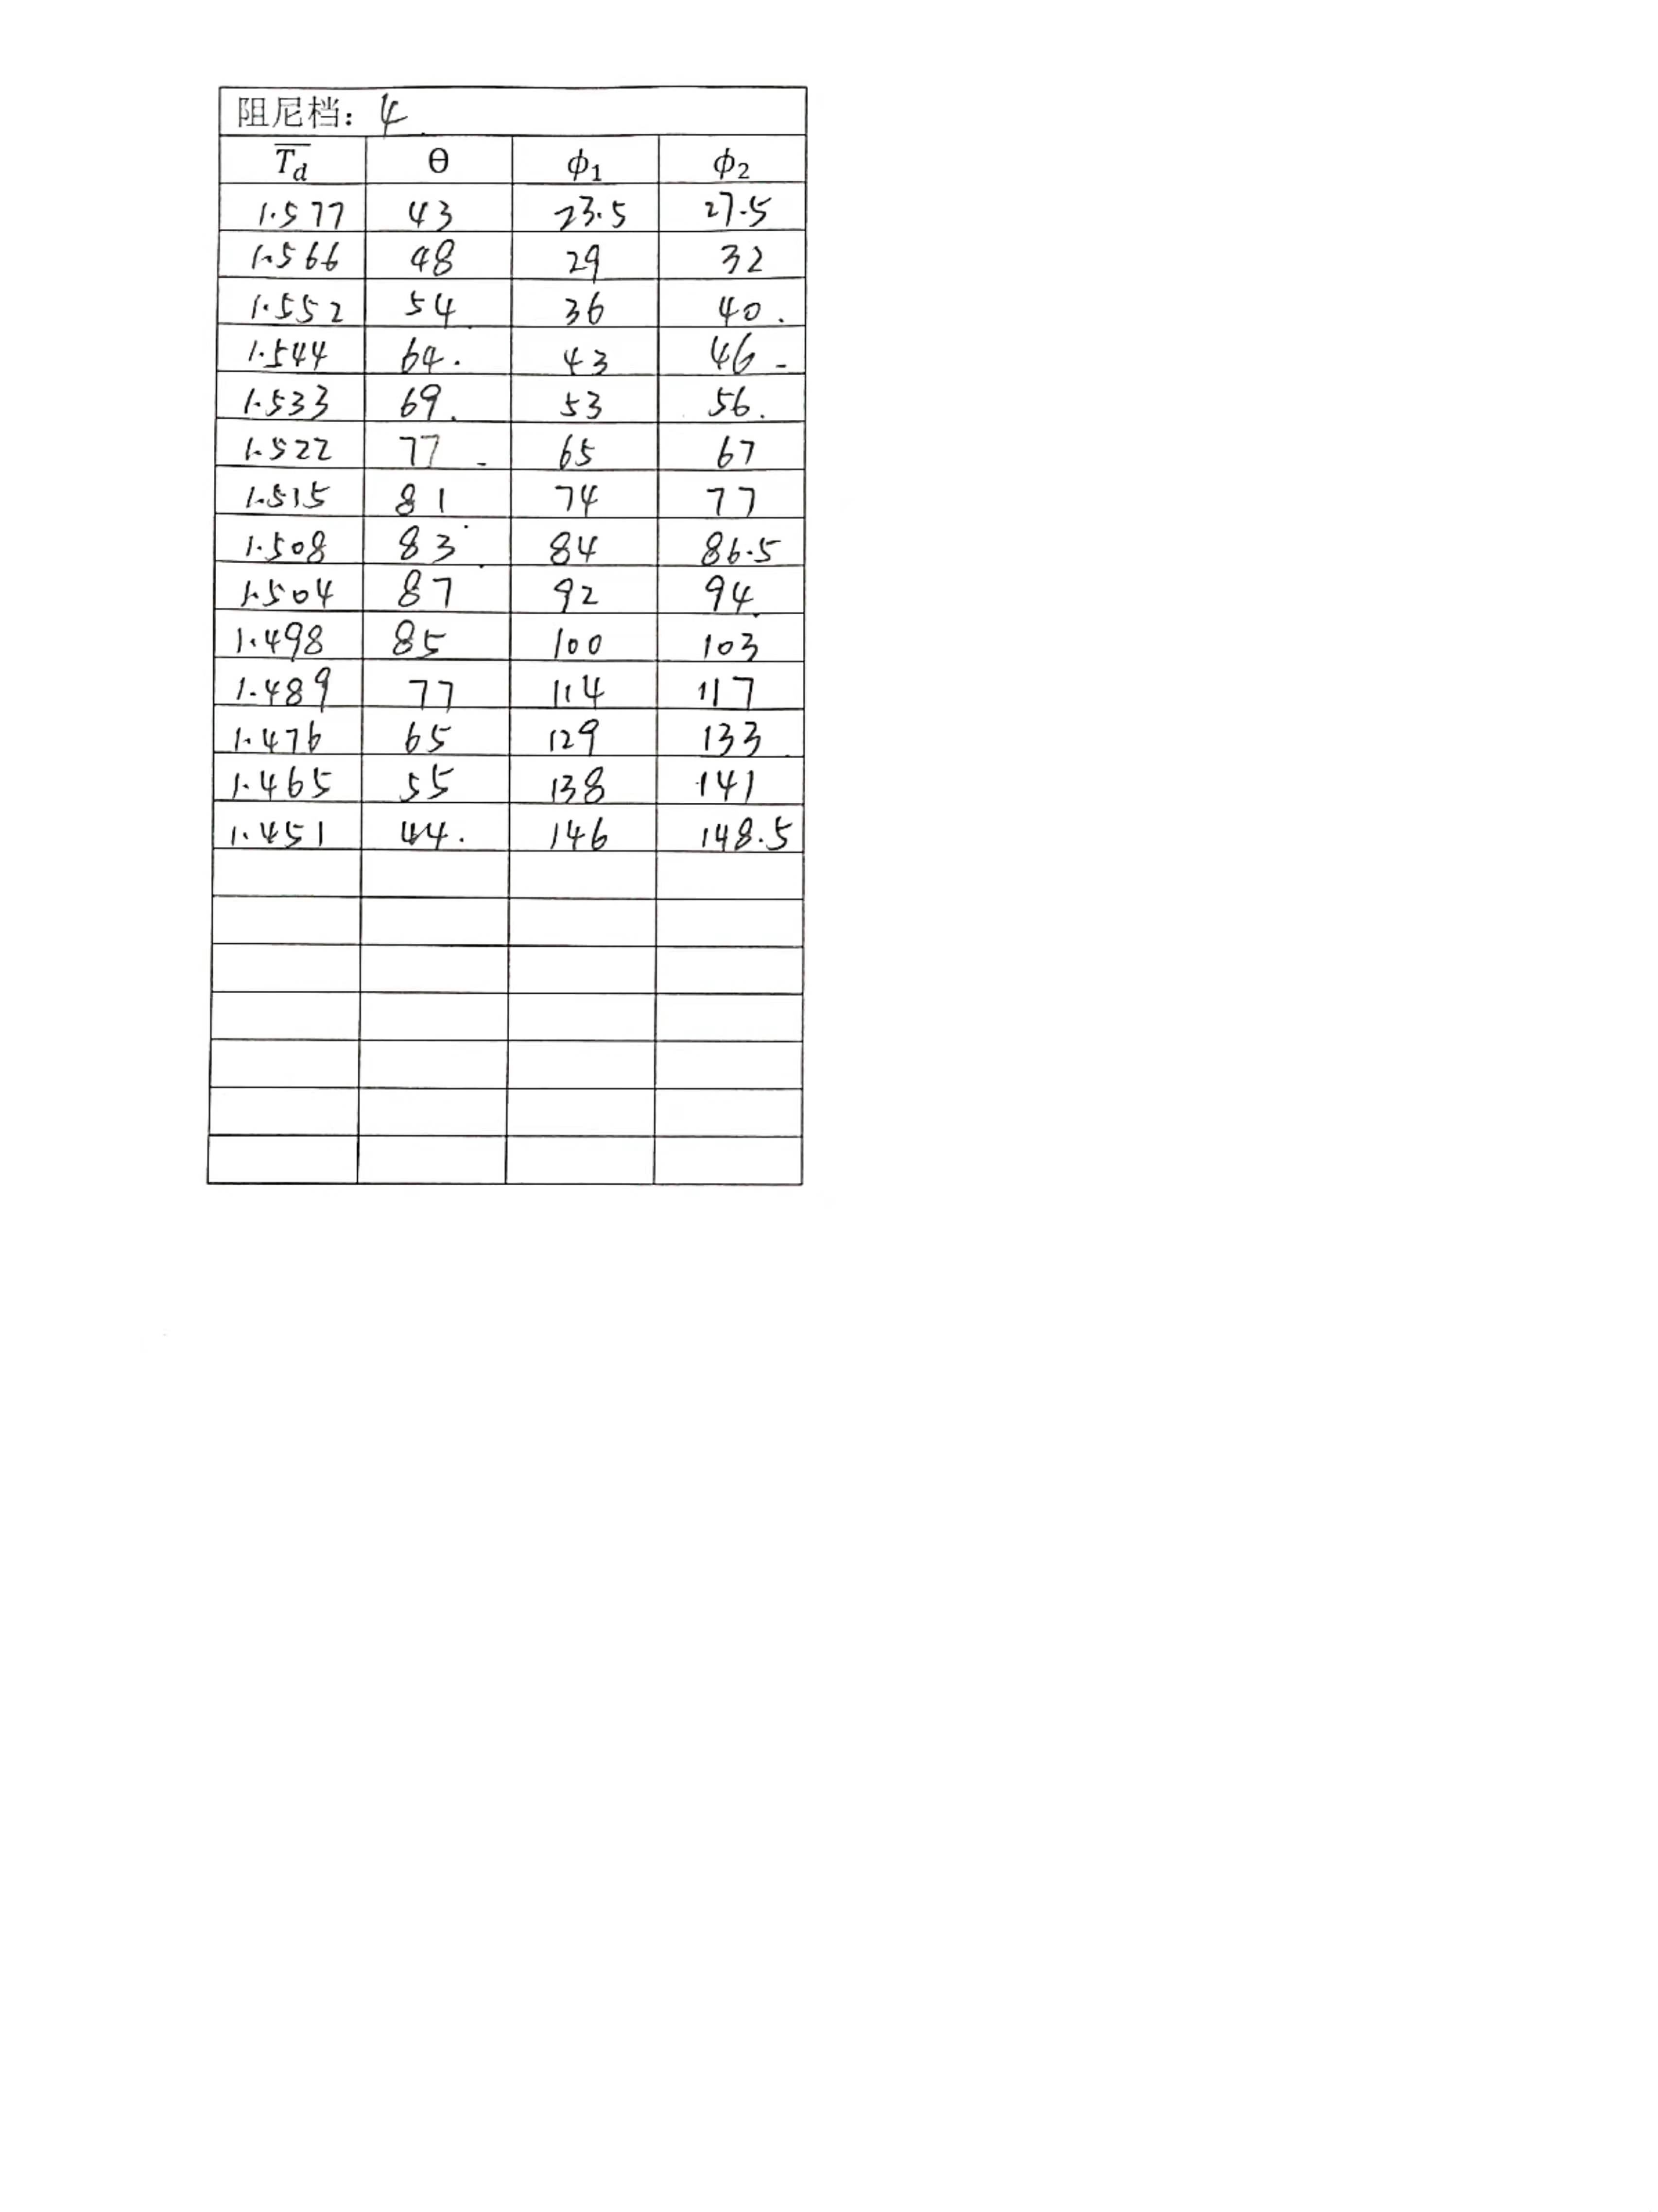 阻尼档: 4
Td θ ϕ1 ϕ2
1.577 43 23.5 27.5
1.566 48 29 32
1.552 54 36 40.
1.544 64. 43 46
1.533 69. 53 56.
1.522 77 65 67
1.515 81 74 77
1.508 83 84 86.5
1.504 87 92 94
1.498 85 100 103
1.489 77 114 117
1.476 65 129 133
1.465 55 138 141
1.451 44. 146 148.5